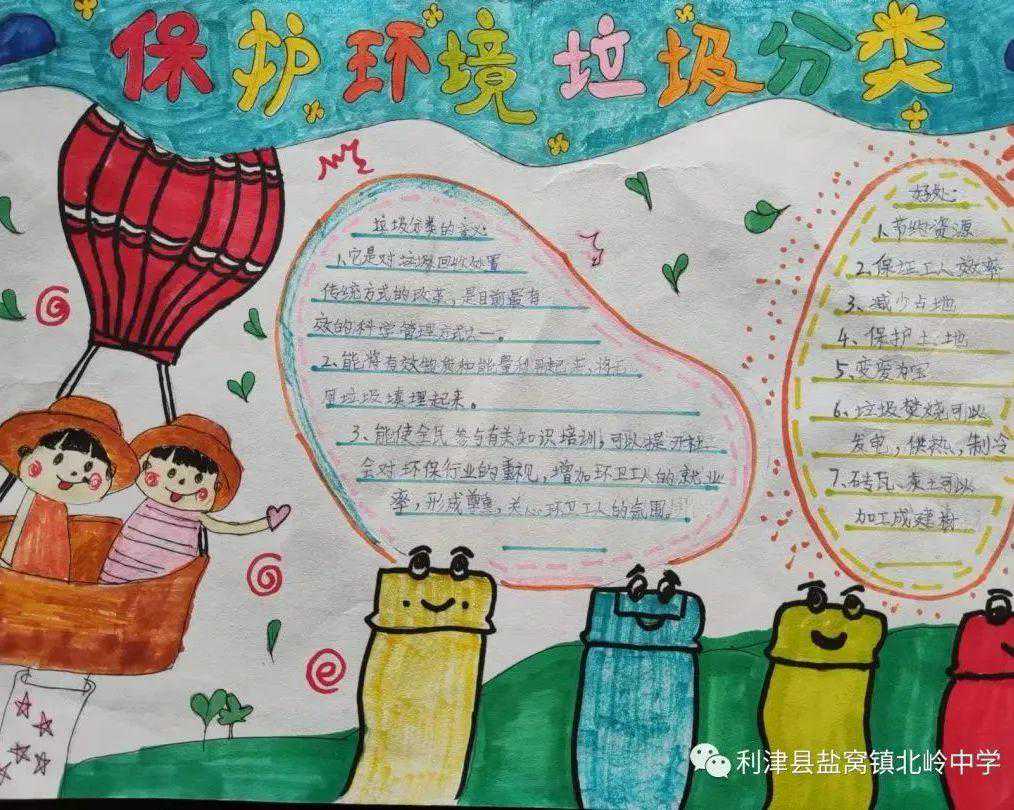 保护环境 垃圾分类
垃圾分类的意义:
1、它是对垃圾回收处置
传统方式的改革,是目前最有
效的科学管理方式之一。
2、能将有效物质和能量利用起来,将无
用垃圾填埋起来。
3、能使全民参与有关知识培训,可以提升社
会对环保行业的重视,增加环卫工人的就业
率,形成尊重,关心环卫工人的氛围。
好处:
1、节约资源
2、保证工人效率
3、减少占地
4、保护土地
5、变废为宝
6、垃圾焚烧可以
发电,供热,制冷
7、砖瓦、灰土可以
加工成建材
利津县盐窝镇北岭中学